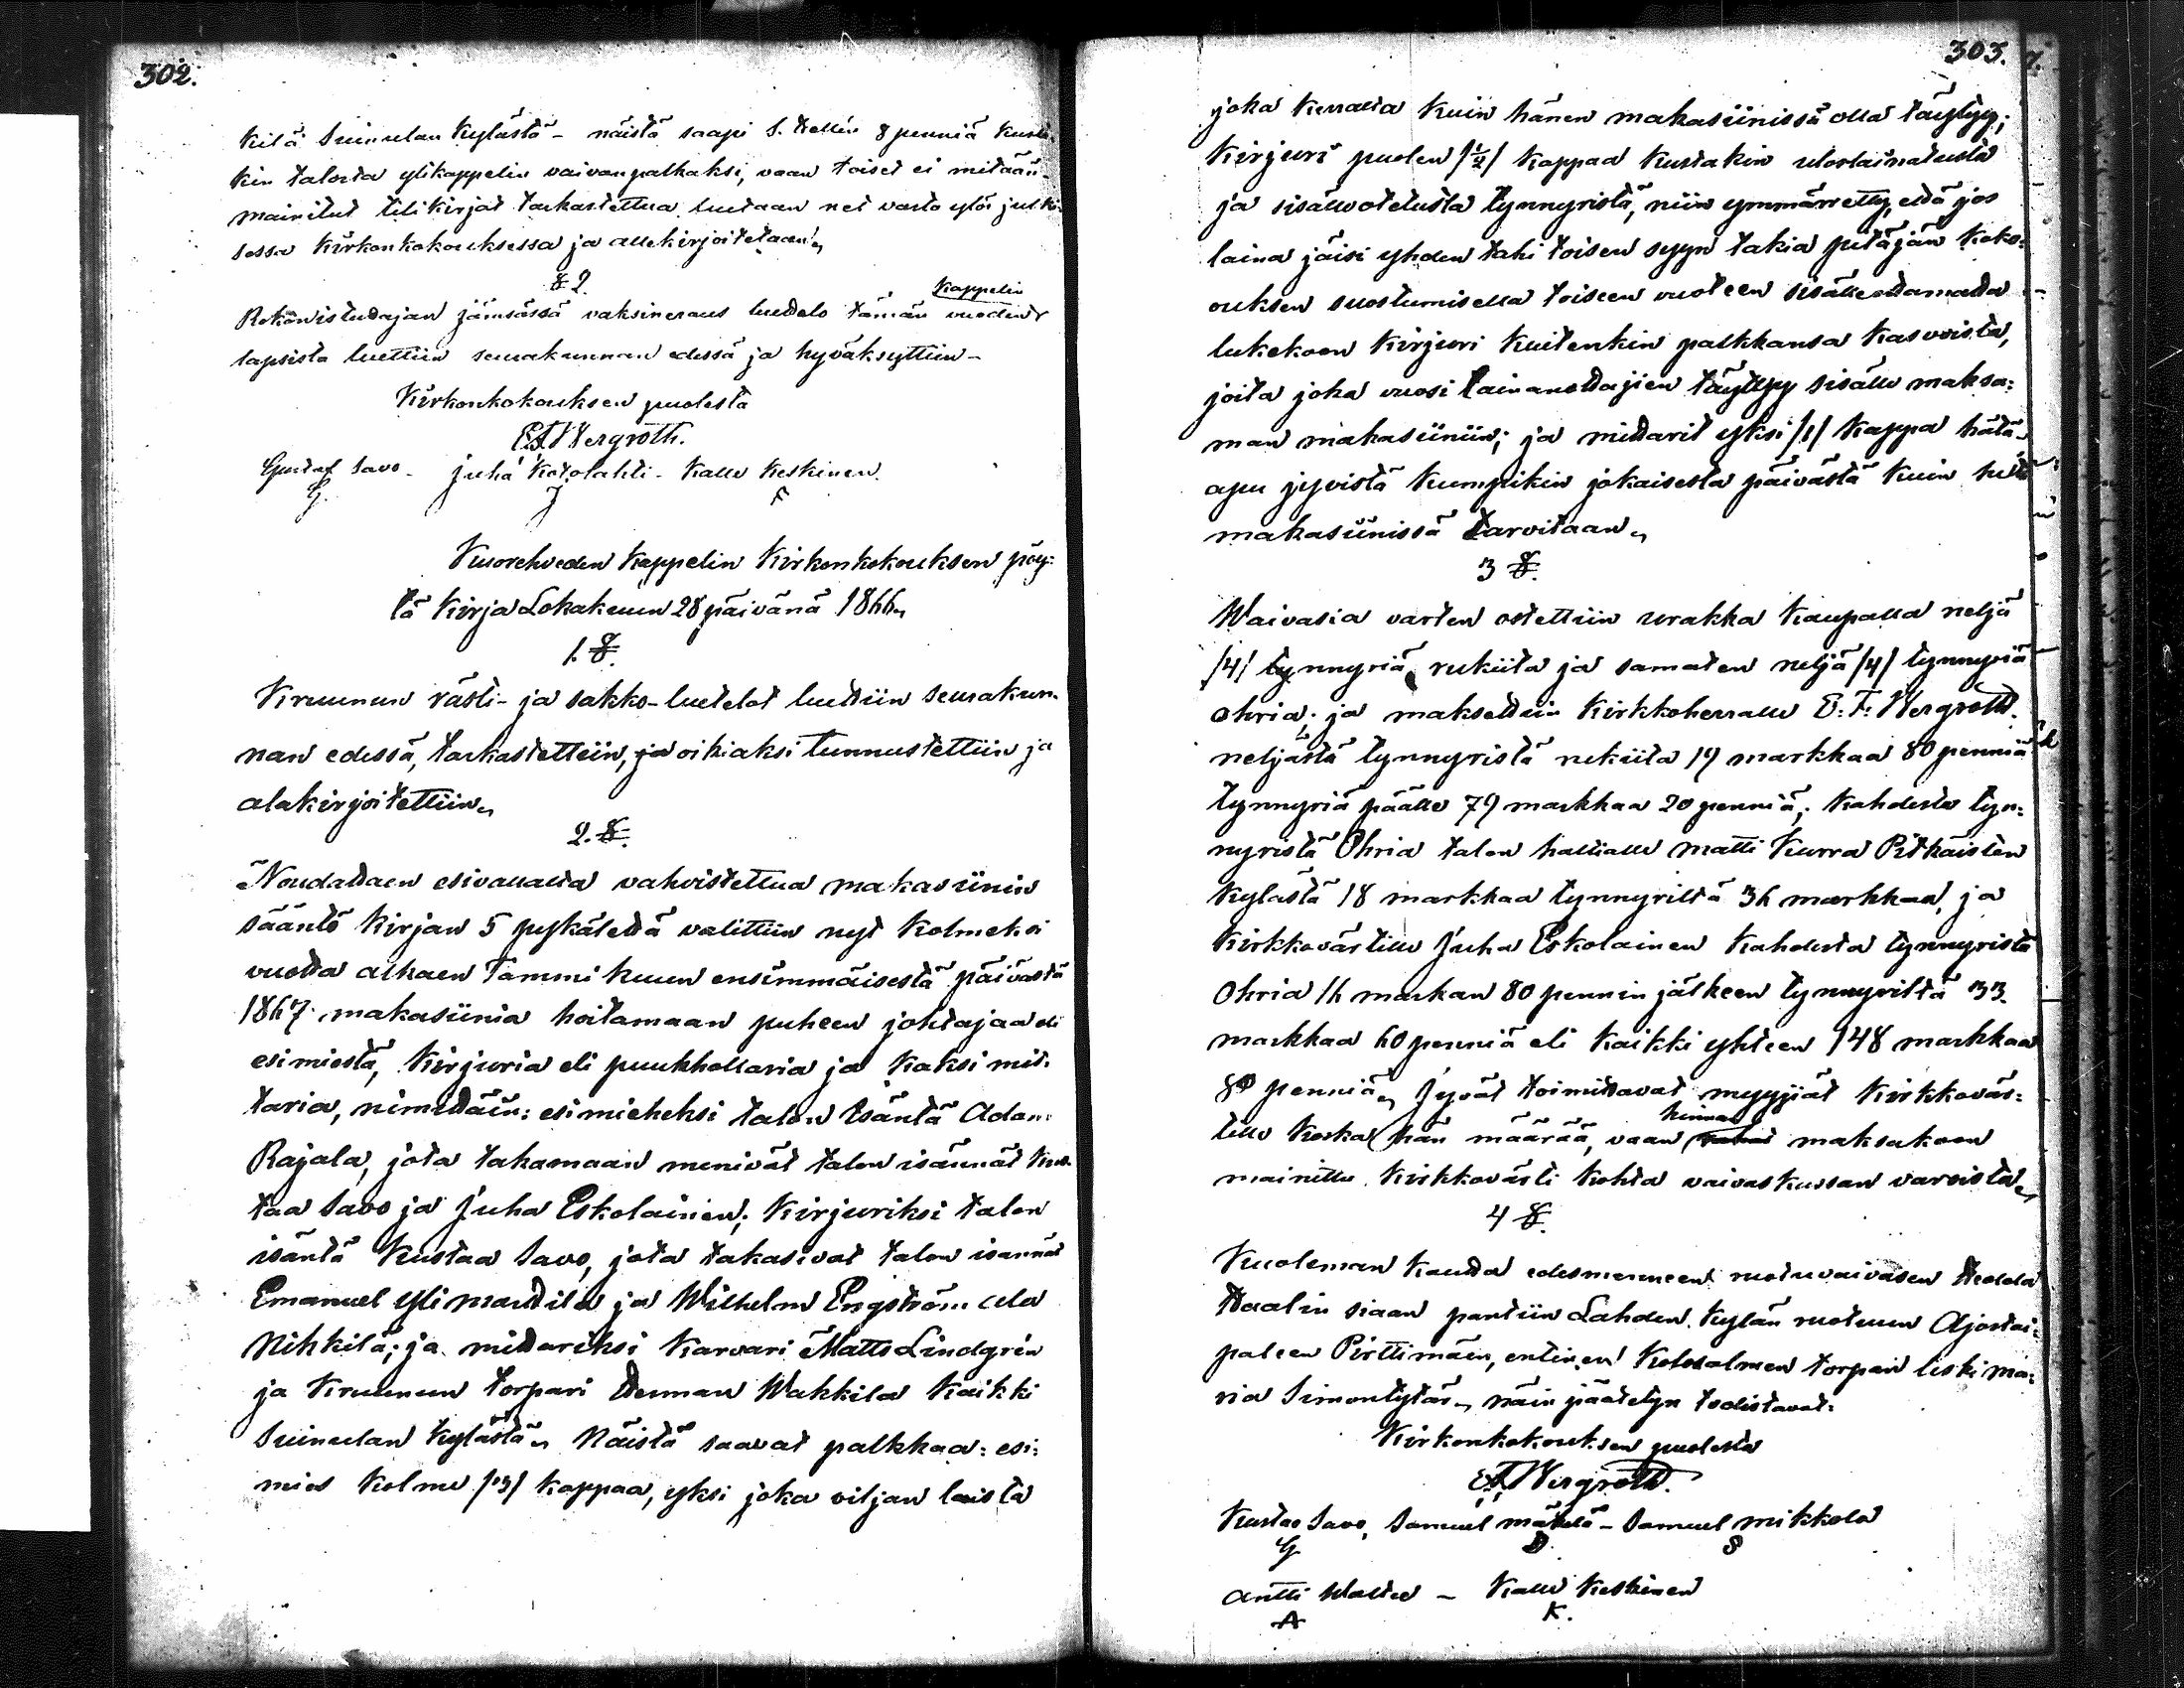 302.
kilä Suinulan kylästä - näistä saapi S. Hellén 8 penniä kusta-
kin talosta ylikappelin vaivanpalkaksi, vaan toiset ei mitään.
mainitut tilikirjat tarkastettua luetaan net vasta ylös julki-
sessa kirkonkokouksessa ja allekirjoitetaan„
§ 2.
Kappelin
Rokonistuttajan Jämsässä vaksineraus luettelo tämän vuoden
lapsista luettiin seurakunnan edessä ja hyväksyttiin -
Kirkonkokouksen puolesta
E.F. Wergroth.
Gustaf Savo - Juha Katolahti - Kalle Keskinen.
G. J K
Kuorehveden Kappelin Kirkonkokouksen pöy-
tä kirja Lokakuun 28 päivänä 1866„
1. §.
Kruunun rästi- ja sakko-luetelot luettiin seurakun-
nan edessä, tarkastettiin, ja oikiaksi tunnustettiin ja
alakirjoitettiin„
2. §.
Noudattaen esivallalta vahvistettua makasiinin
sääntö kirjan 5 pykälettä valittiin nyt kolmeksi
vuotta alkaen Tammi kuun ensimmäisestä päivästä
1867 makasiinia hoitamaan puheen johtajaa eli
esimiestä, kirjuria eli puukhollaria ja kaksi mit-
taria, nimittäin: esimieheksi talon Isäntä Adam
Rajala, jota takaamaan menivät talon isännät Kus-
taa Savo ja Juha Eskolainen; kirjuriksi talon
isäntä Kustaa Savo, jota takasivat talon isännät
Emanuel Yli marttila ja Wilhelm Engström ala
Nihkilä; ja mittariksi karvari Matts Lindgrén
ja kruunun torpari Herman Wahkila kaikki
Suinulan kylästä„ Näistä saavat palkkaa: esi-
mies kolme /3/ kappaa, yksi joka viljan laista
303.
joka kerralta kuin hänen makasiinissä olla täytyy;
kirjuri puolen /½/ kappaa kustakin uloslainatusta
ja sisälleotetusta tynnyristä, niin ymmärretty, että jos
laina jäisi yhden tahi toisen syyn takia pitäjän koko-
ouksen suostumisella toiseen vuoteen sisälleottamatta
lukekoon kirjuri kuitenkin palkkansa kasvoista,
joita joka vuosi lainanottajien täytyy sisälle maksa-
man makasiiniin; ja mittarit yksi /1/ kappa hätä-
apu jyvistä kumpikin jokaisesta päivästä kuin heitä
makasiinissä tarvitaan„
3 §.
Waivasia varten ostettiin urakka kaupalla neljä
/4/ tynnyriä rukiita ja samaten neljä /4/ tynnyriä
ohria; ja maksettiin Kirkkoherralle E. F. Wergroth.
neljästä tynnyristä rukiita 19 markkaa 80 penniä
tynnyriä päälle 79 markkaa 20 penniä; kahdesta tyn-
nyristä Ohria talon halliallе Matti Kurra Pitkäisten
kylästä 18 markkaa tynnyriltä 36 markkaa, ja
kirkkovärtille Juha Eskolainen kahdesta tynnyristä
Ohria 16 markan 80 pennin jälkeen tynnyriltä 33
markkaa 60 penniä eli kaikki yhteen 148 markkaa
80 penniä„ Jyvät toimittavat myyjiät kirkkovär-
hinnan
tille koska hän määrää, vaan maksakoon
mainittu kirkkovärti kohta vaivaskassan varoista„
4 §.
Kuoleman kautta edesmenneen ruotuvaivasen Hedda
Haalin siaan pantiin Lahden kylän ruotuun Ajostai-
paleen Pirttimäen, entinen Kolosalmen torpan leski Ma-
ria Simontytär„ näin päätetyn todistavat:
Kirkonkokouksen puolesta
E.F. Wergroth.
Kustaa Savo, Samuel Mäkelä - Samuel Mikkola
G S
Antti Wallin - Kalle Keskinen
A K.